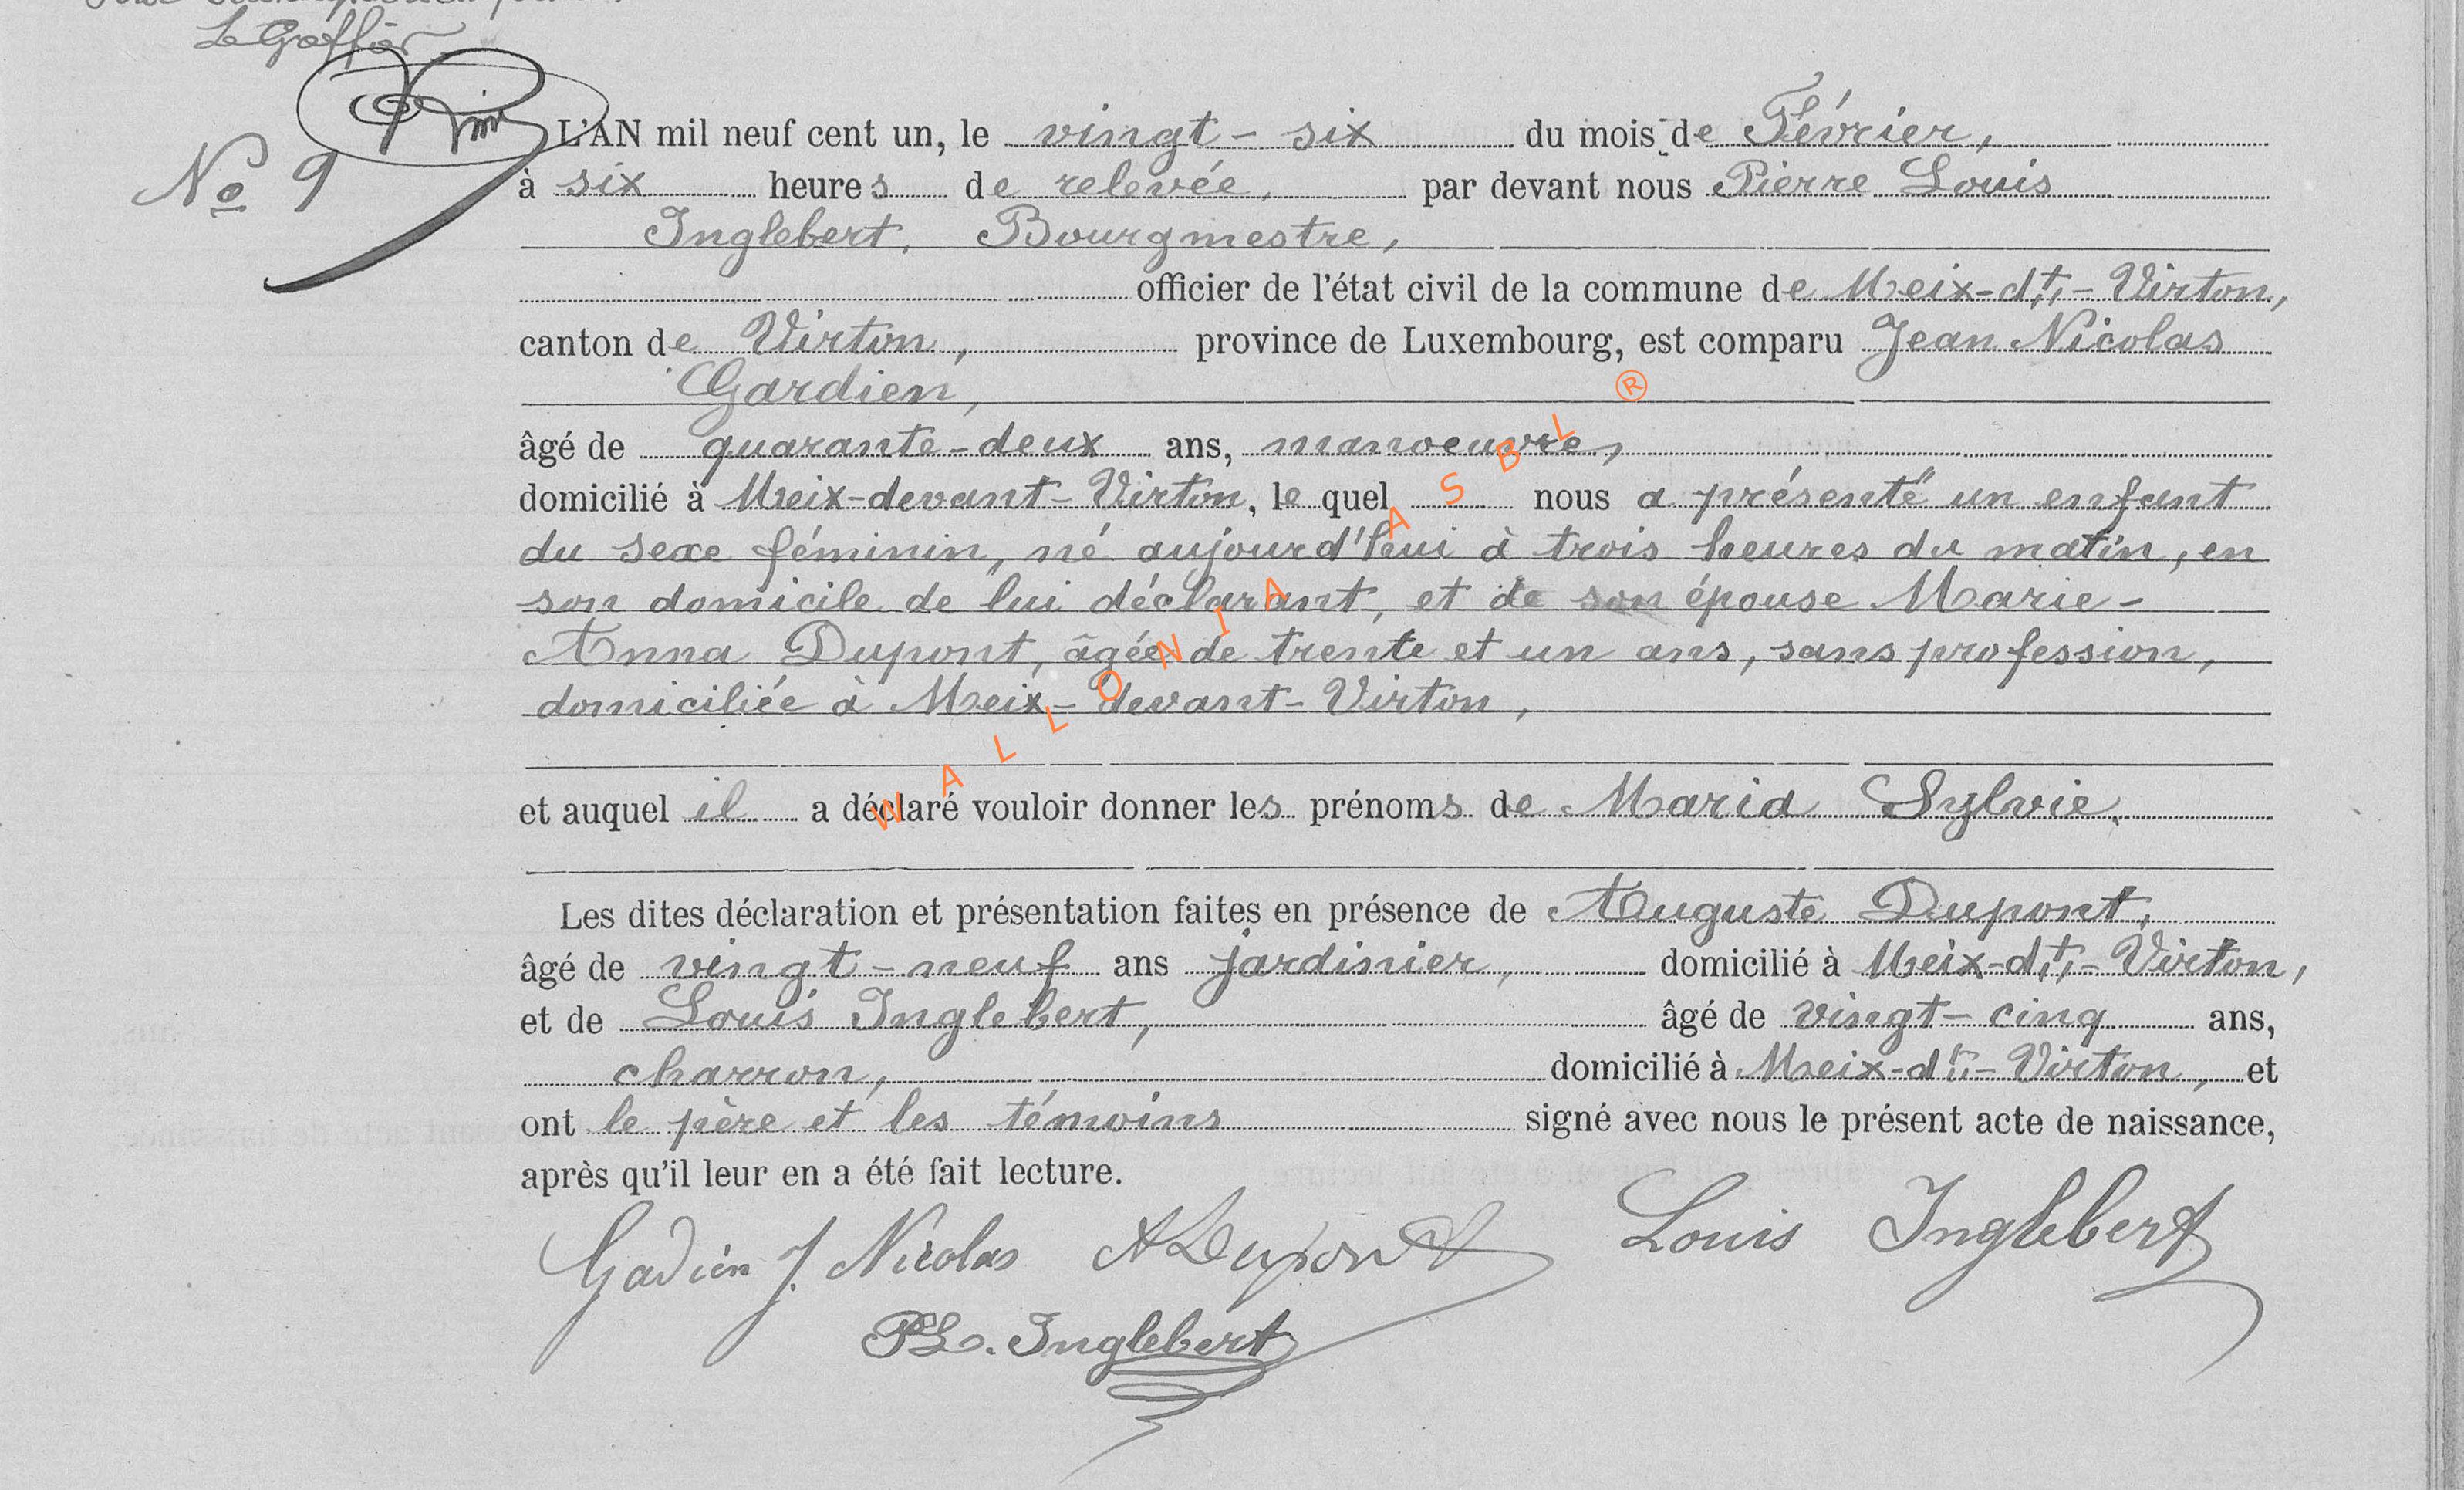 Le Greffier
No 9
L'AN mil neuf cent un, le vingt-six du mois de Février,
à six heures de relevée, par devant nous Pierre Louis
Inglebert, Bourgmestre,
officier de l'état civil de la commune de Meix-dt,-Virton,
canton de Virton, province de Luxembourg, est comparu Jean Nicolas
Gardien,
âgé de quarante-deux ans, manoeuvre,
domicilié à Meix-devant-Virton, le quel nous a présenté un enfant
du sexe féminin, né aujourd'hui à trois heures du matin, en
son domicile de lui déclarant, et de son épouse Marie-
Anna Dupont, âgée de trente et un ans, sans profession,
domiciliée à Meix-devant-Virton,
et auquel il a déclaré vouloir donner les prénoms de Maria Sylvie.
Les dites déclaration et présentation faites en présence de Auguste Dupont,
âgé de vingt-neuf ans jardinier, domicilié à Meix-dt,-Virton,
et de Louis Inglebert, âgé de vingt-cinq ans,
charron, domicilié à Meix-dt,-Virton, et
ont le père et les témoins signé avec nous le présent acte de naissance,
après qu'il leur en a été fait lecture.
Gadien J. Nicolas ADupont Louis Inglebert
PL. Inglebert
WALLONIA ASBL ®